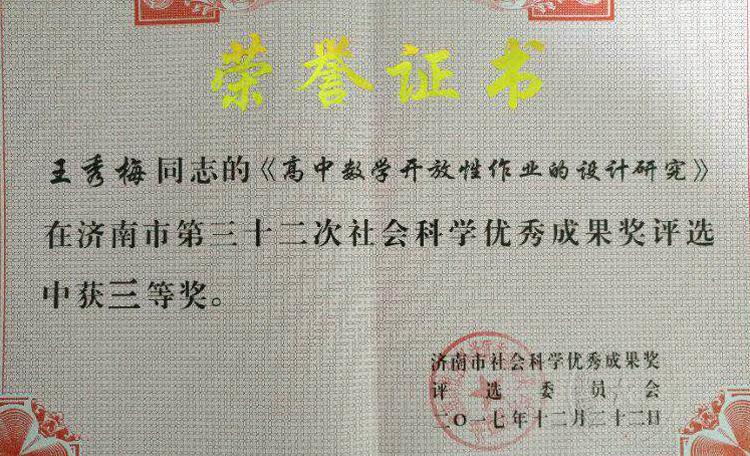 荣誉证书
王秀梅同志的《高中数学开放性作业的设计研究》
在济南市第三十二次社会科学优秀成果奖评选
中获三等奖。
济南市社会科学优秀成果奖
评选委员会
二〇一七年十二月二十二日